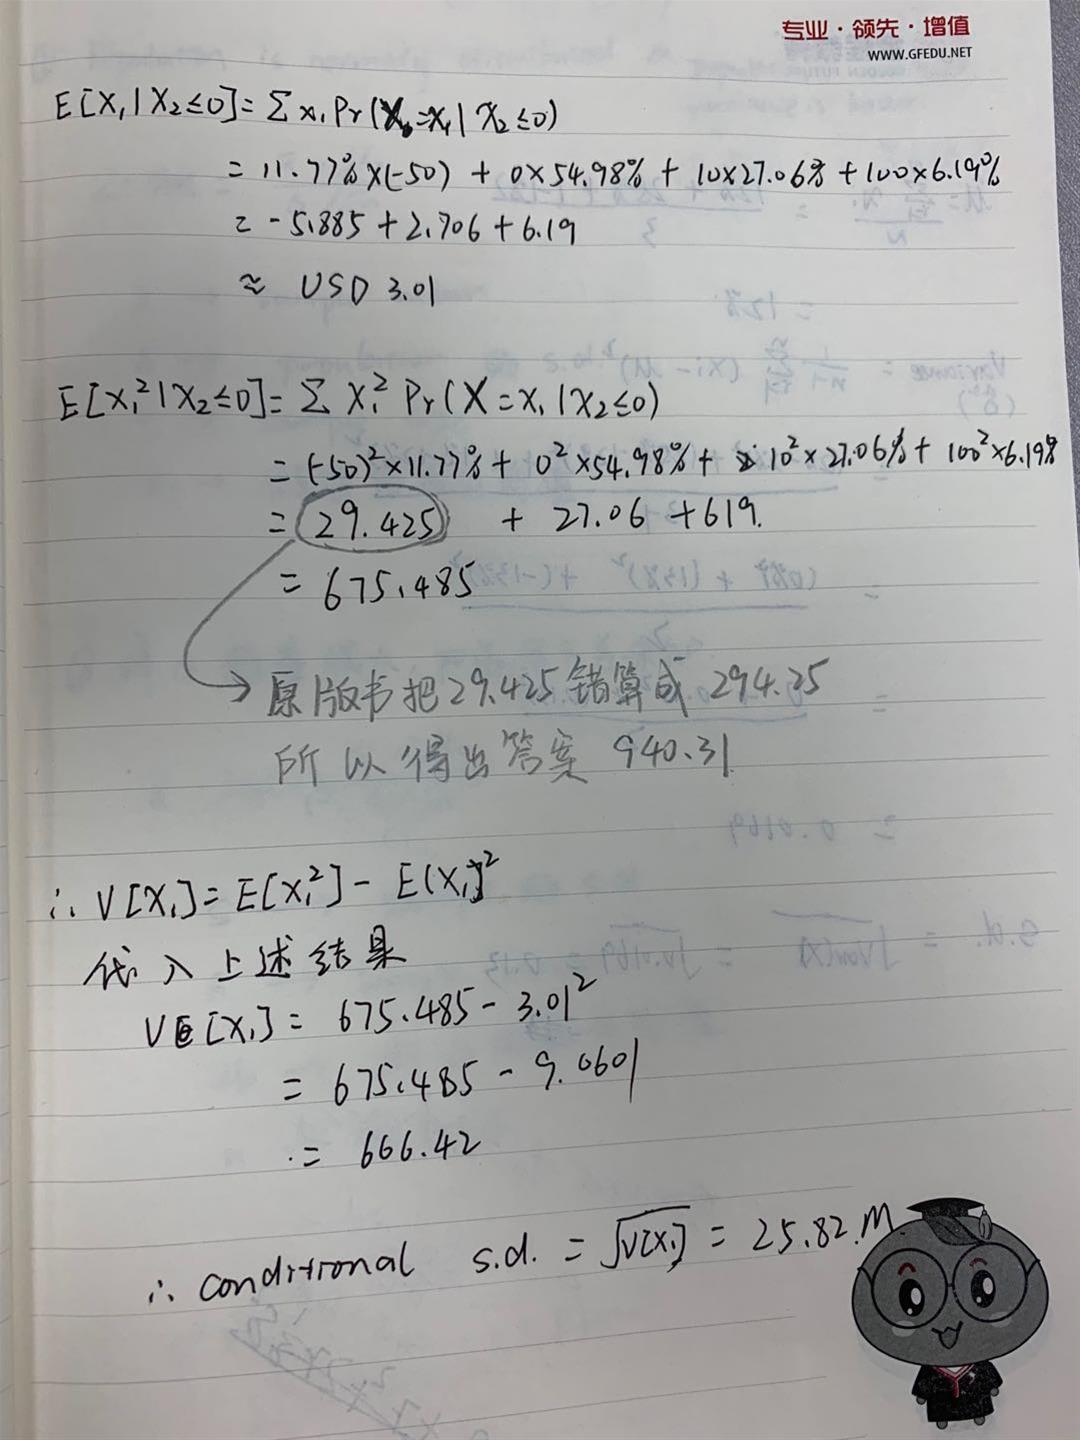 专业·领先·增值
WWW.GFEDU.NET
E[X₁|X₂≤0]=Σ x₁ Pr(X₁=x₁|X₂≤0)
= 11.77%×(-50) + 0×54.98% + 10×27.06% + 100×6.19%
= -5.885 + 2.706 + 6.19
≈ USD 3.01
E[X₁²|X₂≤0]= Σ X₁² Pr(X=x₁|X₂≤0)
= (-50)²×11.77% + 0²×54.98% + 10²×27.06% + 100²×6.19%
= 29.425 + 27.06 + 619.
= 675.485
→ 原版书把29.425错算成 294.25
所以得出答案 940.31
∴ V[X₁]= E[X₁²]- E(X₁]²
代入上述结果
V[X₁]= 675.485 - 3.01²
= 675.485 - 9.0601
= 666.42
∴ conditional s.d. = √V[X₁] = 25.82.M